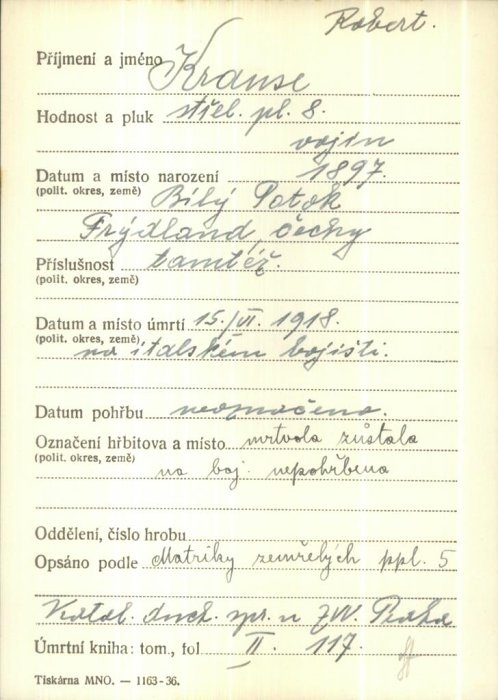 Robert.
Příjmení a jméno Krause
Hodnost a pluk střel. pl. 8.
vojín
Datum a místo narození 1897.
(polit. okres, země) Bílý Potok
Frýdland, čechy
Příslušnost tamtéž.
(polit. okres, země)
Datum a místo úmrtí 15./VI. 1918.
(polit. okres, země) na italském bojišti.
Datum pohřbu neoznačeno.
Označení hřbitova a místo mrtvola zůstala
(polit. okres, země) na boj. nepohřbena
Oddělení, číslo hrobu
Opsáno podle Matriky zemřelých ppl. 5
Katol. duch. spr. u ZVV. Praha
Úmrtní kniha: tom., fol II. 117.
Tiskárna MNO. — 1163-36.